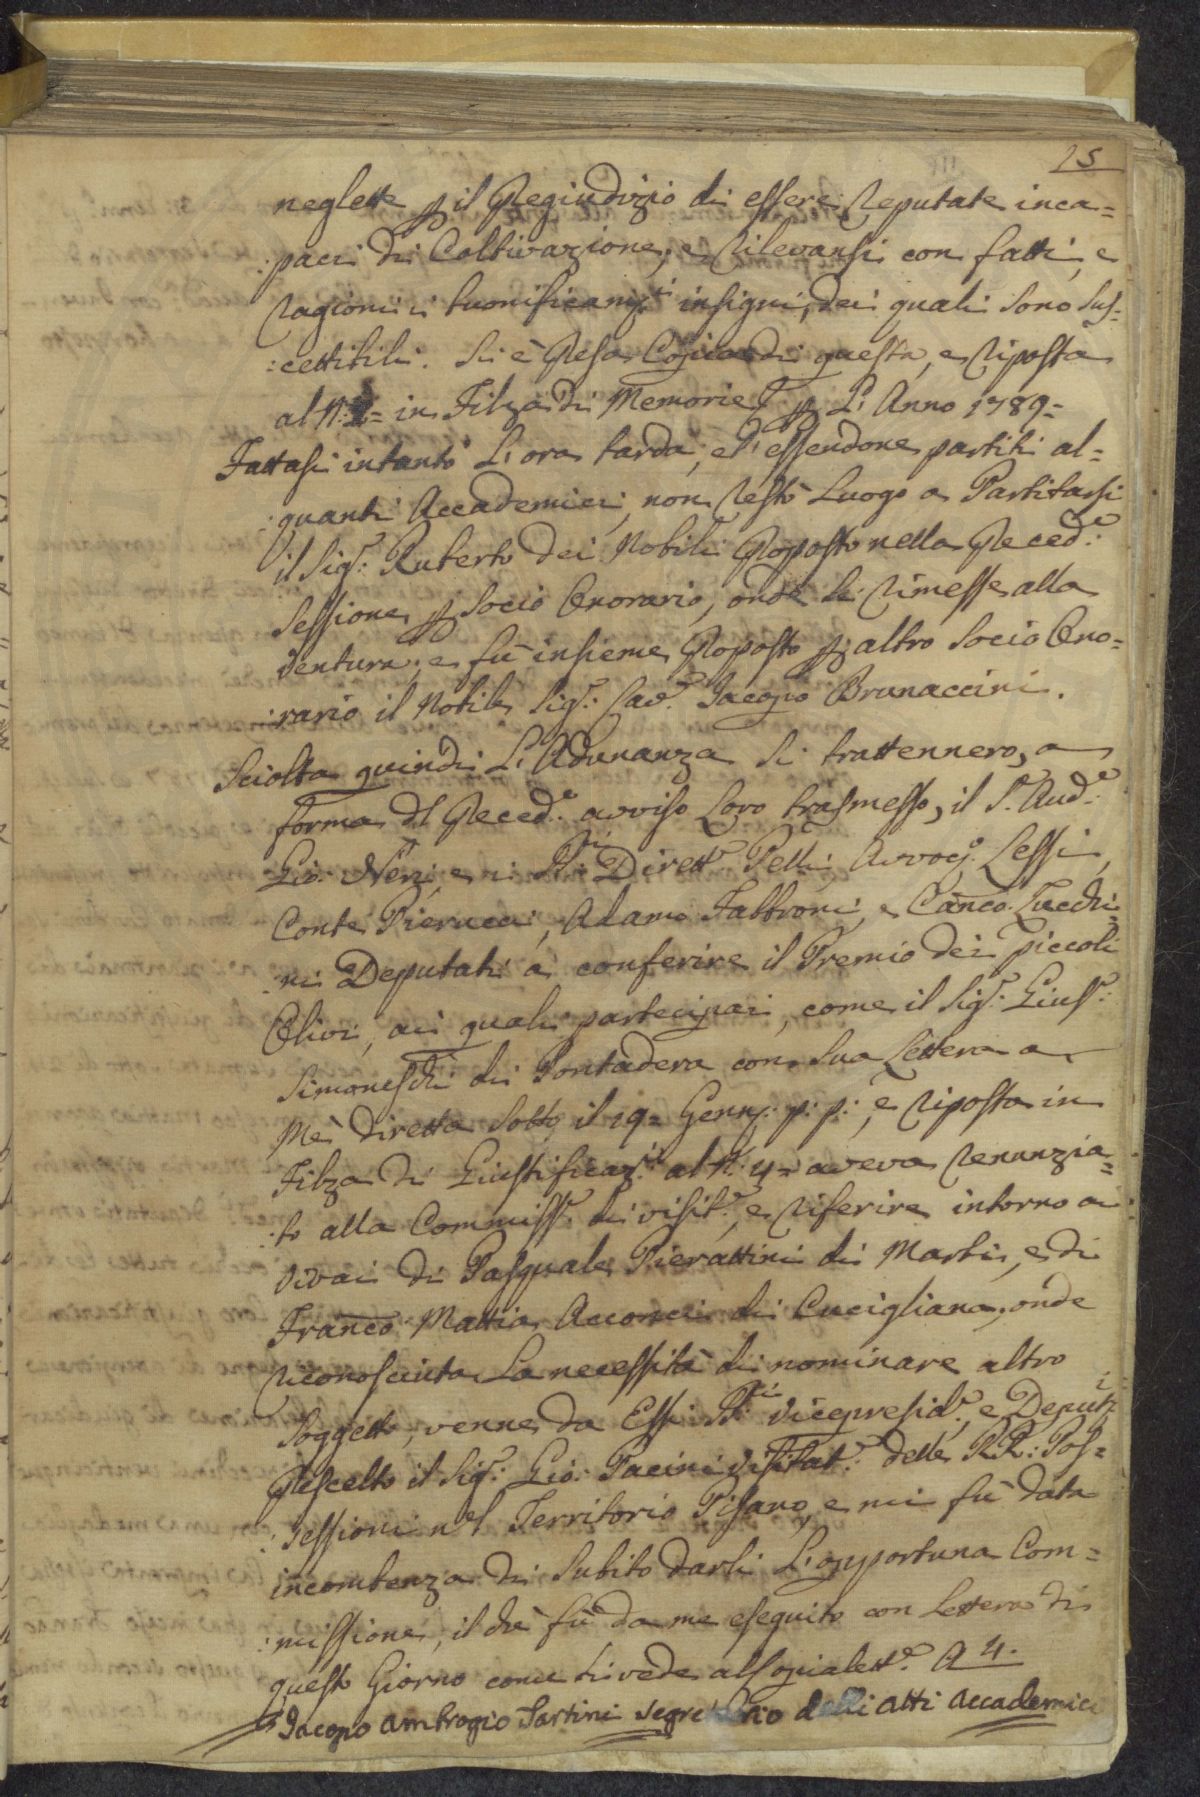 25
neglette p il Pregiudizio di essere reputate inca=
:paci di Coltivazione, e rilevansi con fatti, e
ragioni i buonificam.ti insigni, dei quali sono sus=
:cettibili. Si è Presa Copia di questa, e riposta
al N: 2= in Filza di Memorie p L'Anno 1789=
Fattasi intanto L'ora tarda, ed essendone partiti al=
:quanti Accademici, non restò Luogo a Partitarsi
il Sig.r Ruberto dei Nobili Proposto nella Preced.e
Sessione p Socio Onorario, onde si rimesse alla
ventura, e fù insieme Proposto p altro Socio Ono=
:rario il Nobile Sig.r Cav.r Jacopo Brunaccini.
Sciolta quindi L'Adunanza si trattennero, a
forma dl Preced.e avviso Loro trasmesso, il S.r Aud.e
Gio: Neri, e i SS.ri Dirett.e Pelli, Avvoc. Lessi,
Conte Pierucci, Adamo Fabbroni, e Canco. Zucchi=
:ni Deputati a conferire il Premio dei Piccoli
Olivi, ai quali partecipai, come il Sig.r Gius.e
Simoneschi di Pontadera con Sua Lettera a
Me diretta Sotto il 19= Genn. p: p:, e riposta in
Filza di Giustificaz.i al N: 4= aveva renunzia=
:to alla Commiss.e di visit.e, e riferire intorno a
vivai di Pasquale Pierattini di Marti, e di
Franco Mattia Acconci di Cucigliana, onde
riconosciuta La necessità di nominare altro
Soggetto, venne da Essi SS.ri Vicepresid.e, e Deput.i
Prescelto il Sig.r Gio: Pacini Visitat.e delle RR: Pos=
:sessioni nel Territorio Pisano, e mi fù data
incombenza di Subito darli L'opportuna Com=
:missione, il che fù da me eseguito con Lettera di
questo Giorno come si vede al Copialett.e A 4.
Jacopo Ambrogio Tartini Segretario delli Atti Accademici